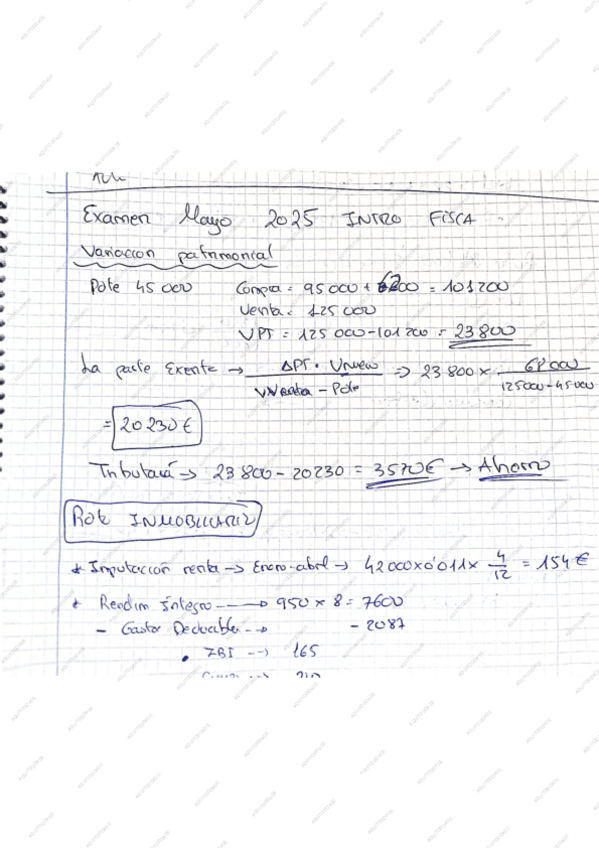 Examen Mayo 2025 INTRO FISCA
Variacion patrimonial
Pote 45 000 Compra = 95 000 + 6200 = 101200
Venta = 125 000
VPT = 125 000 - 101 200 = 23 800
La parte Exenta → ΔPT · Vnuevo / VVenta - Pote => 23 800 × 68 000 / 125000 - 45 000
= 20 230 €
Tributará → 23 800 - 20230 = 3570 € → Ahorro
INMOBILIARIZ
* Imputación renta → Enero-abril → 42 000 × 0'011 × 4/12 = 154 €
* Rendim íntegro → 950 × 8 = 7600
- Gastos Deducibles → - 2087
• IBI --> 165